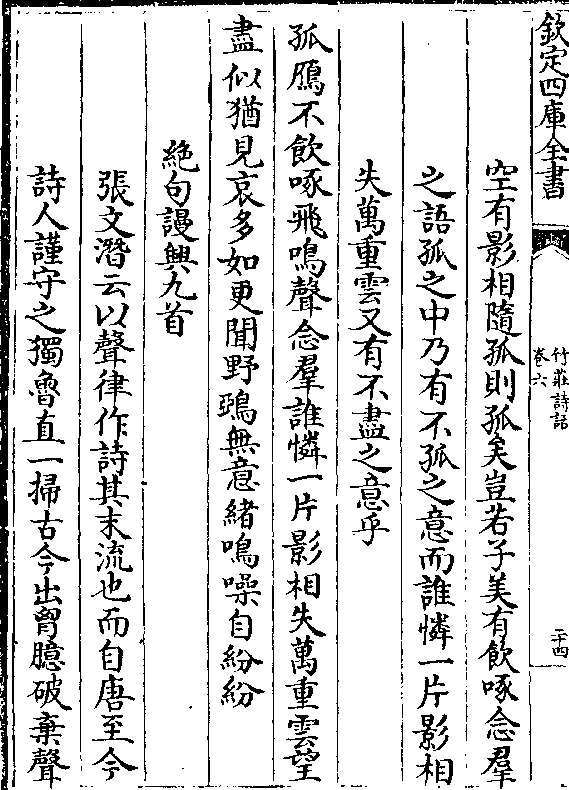 欽定四庫全書
竹莊詩話
卷六
二十四
空有影相隨孤則孤矣豈若子美有飲啄念羣
之語孤之中乃有不孤之意而誰憐一片影相
失萬重雲又有不盡之意乎
孤鴈不飲啄飛鳴聲念羣誰憐一片影相失萬重雲望
盡似猶見哀多如更聞野鵶無意緒鳴噪自紛紛
絶句謾興九首
張文潛云以聲律作詩其末流也而自唐至今
詩人謹守之獨魯直一掃古今出胷臆破棄聲